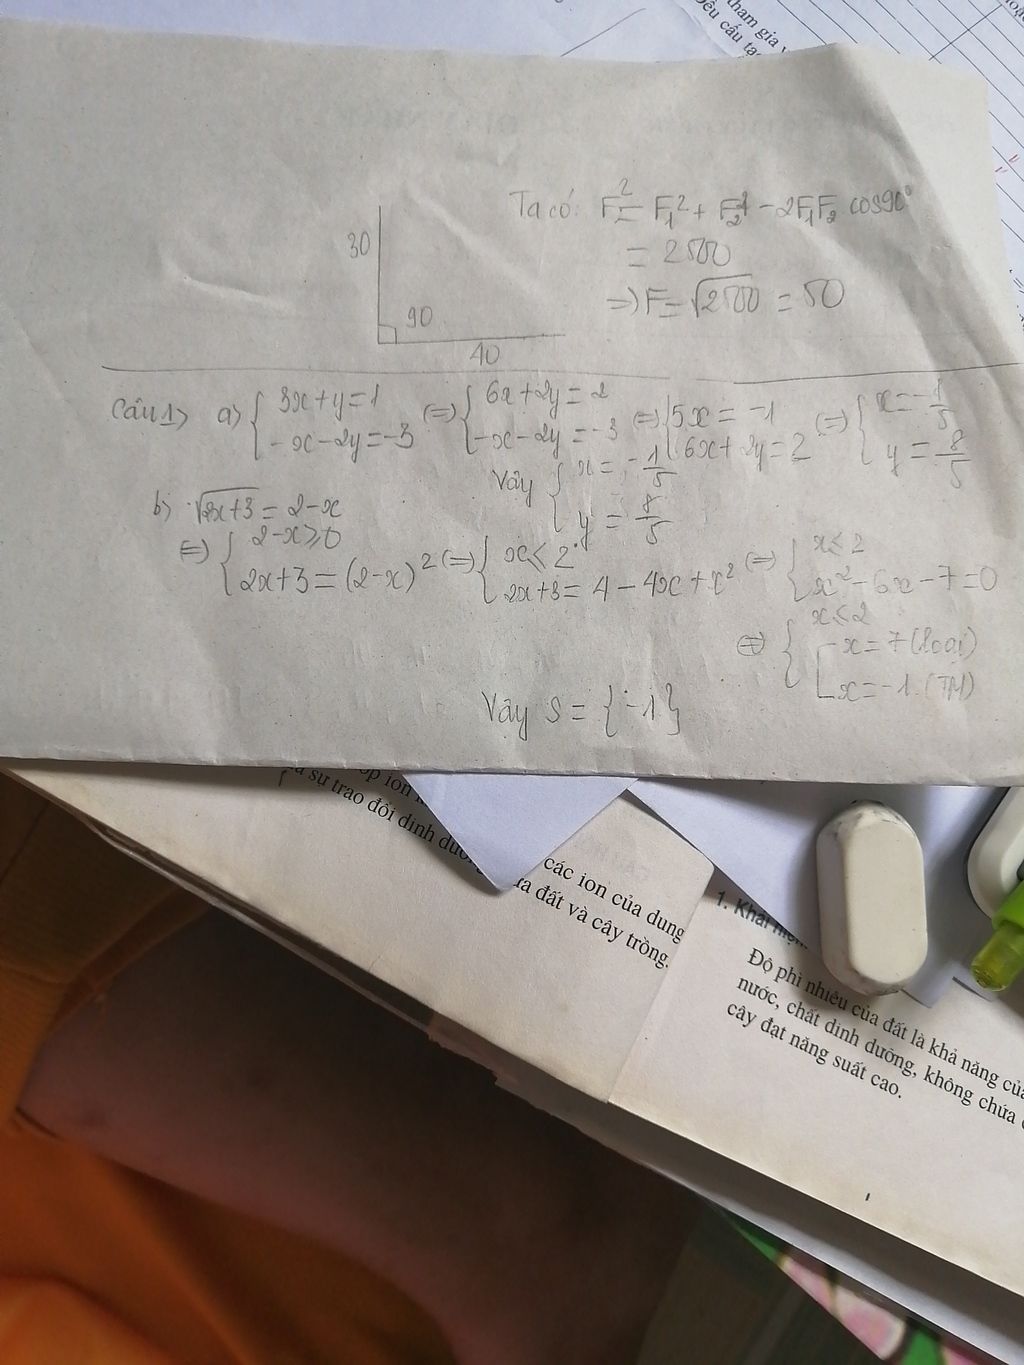 tham gia v
yêu cầu tạ
Ta có: F² = F₁² + F₂² - 2F₁F₂ cos90°
30
= 2500
=> F = √2500 = 50
90
40
Câu 1> a) { 3x+y=1 (=) { 6x+2y=2 (=) { 5x = -1 (=) { x = -1/5
-x-2y=-3 -x-2y=-3 6x+2y=2 y = 8/5
Vậy { x = -1/5
y = 8/5
b) √2x+3 = 2-x
(=) { 2-x ⩾ 0 (=) { x ⩽ 2 (=) { x ⩽ 2
2x+3 = (2-x)² 2x+3 = 4-4x+x² x²-6x-7=0
(=) { x ⩽ 2
[ x=7 (loại)
x=-1 (TM)
Vậy S = {-1}
sự trao đổi dinh dư
các ion của dung
đất và cây trồng.
1. Khái
Độ phì nhiêu của đất là khả năng của
nước, chất dinh dưỡng, không chứa
cây đạt năng suất cao.